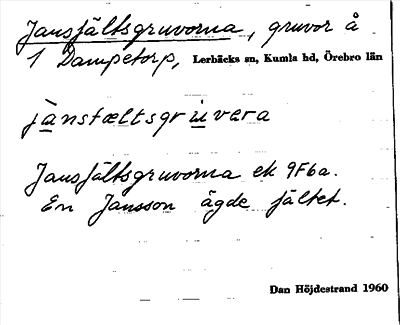 Jansfältsgruvorna, gruvor å
1 Dampetorp, Lerbäcks sn, Kumla hd, Örebro län
jànstæltsgrùvera
Jansfältsgruvorna ek 9F6a.
En Jansson ägde fältet.
Dan Höjdestrand 1960